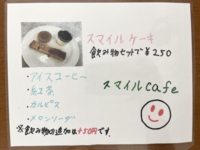 スマイルケーキ
飲み物セットで¥250
・アイスコーヒー
・紅茶
・カルピス
・メロンソーダ
スマイルcafe
※飲み物の追加は+50円です。